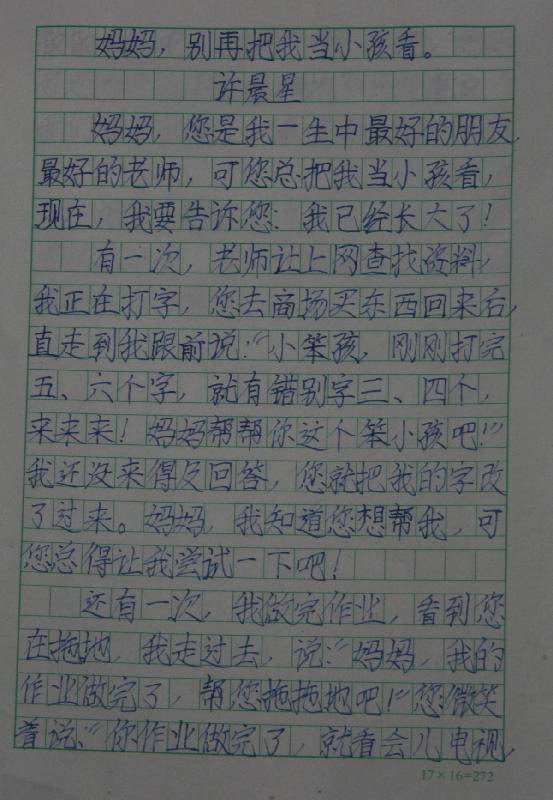 妈妈，别再把我当小孩看。
许晨星
妈妈，您是我一生中最好的朋友，
最好的老师，可您总把我当小孩看，
现在，我要告诉您：我已经长大了！
有一次，老师让上网查找资料，
我正在打字，您去商场买东西回来后，
直走到我跟前说：“小笨孩，刚刚打完
五、六个字，就有错别字三、四个，
来来来！妈妈帮帮你这个笨小孩吧！”
我还没来得及回答，您就把我的字改
了过来。妈妈，我知道您想帮我，可
您总得让我尝试一下吧！
还有一次，我做完作业，看到您
在拖地，我走过去，说：“妈妈，我的
作业做完了，帮您拖拖地吧！”您微笑
着说：“你作业做完了，就看会儿电视，
17×16=272